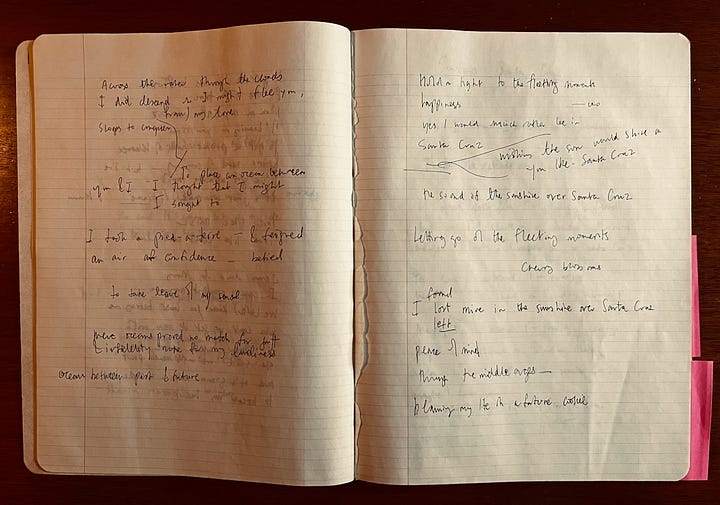 Across the water through the clouds
I did descend so I might flee you,
my love
Stoops to conquer
To place an ocean between
you & I I thought that I might
I sought to
I took a pied-a-terre — & feigned
an air of confidence —
to take leave of my
mere oceans proved no match for
my loneliness
oceans between past & future
Hold tight to the fleeting moments
happiness
yes I would rather be in
Santa Cruz
wishing the sun would shine on
you like - Santa Cruz
the sound of the sunshine over Santa Cruz
Letting go of the fleeting moments
Cherry blossoms
found
I lost mine in the sunshine over Santa Cruz
left
peace of mind
the middle ages —
blaming my life on a future